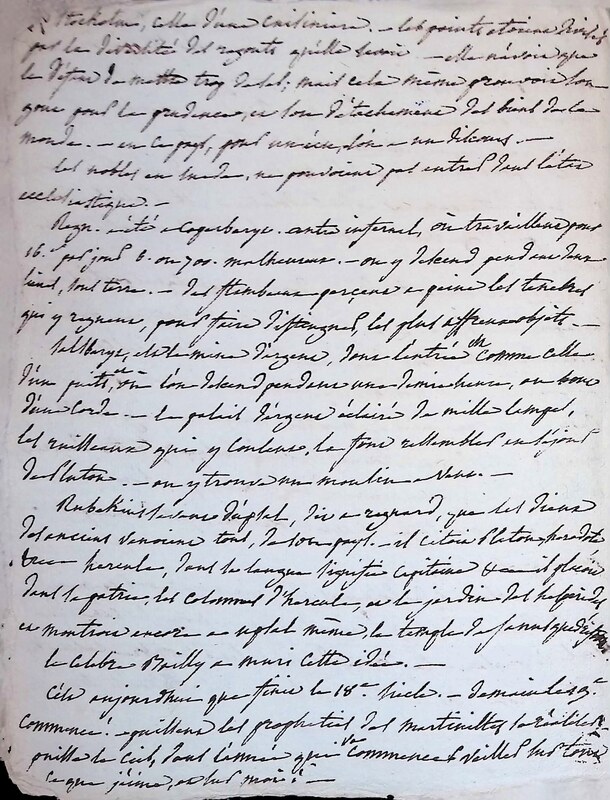 Stockolm, celle d'une cuisiniere. — les points etoient
par la diversité des ragouts qu'elle savoit — elle n'avoit que
le défaut de mettre trop de sel; mais cela même prouvoit son
gout pour la prudence, et son détachement des biens de ce
monde. — en ce pays, pour un écu, l'on a un discours. —
les nobles en suede, ne pouvoient pas entrer dans l'état
ecclésiastique. —
Regn. a été a coperberye. antre infernal, où travaillent pour
16. par jour 6. ou 700. malheureux. — on y descend pendant
lieues, sous terre. — des flambeaux percent a peine les tenebres
qui y regnent, pour faire distinguer, les plus affreux objets. —
salberye, est la mine d'argent, dont l'entrée est comme celle
d'un puits, et où l'on descend pendant une demie heure, au bout
d'une corde. — le palais d'argent éclairé de mille lampes,
les ruisseaux qui y coulent, le font ressembler au séjour
de Pluton. — on y trouve un moulin a vent. —
Rubekius savant d'upsal, dit a regnard, que les dieux
des anciens venoient tous, de son pays. — il citoit Platon, herodote
hercule, dans sa langue signifie capitaine &c il plaçoit
dans sa patrie, les colomnes d'hercule, et le jardin des hesperides
et montroit encore a upsal même, le temple de Janus
le celebre Bailly a muri cette idée. —
C'est aujourdhui que finit le 18e siecle. — demain le 19e.
commence. — puissent les propheties des martinistes se réaliser
puisse le ciel, dans l'année qui va commencer veiller sur tout
ce que j'aime, et sur moi! —